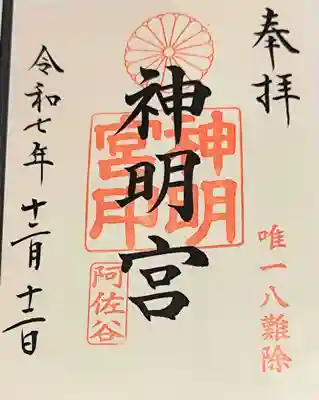 奉拝
唯一八難除
神明宮
神明宮印
阿佐谷
令和七年十二月十二日